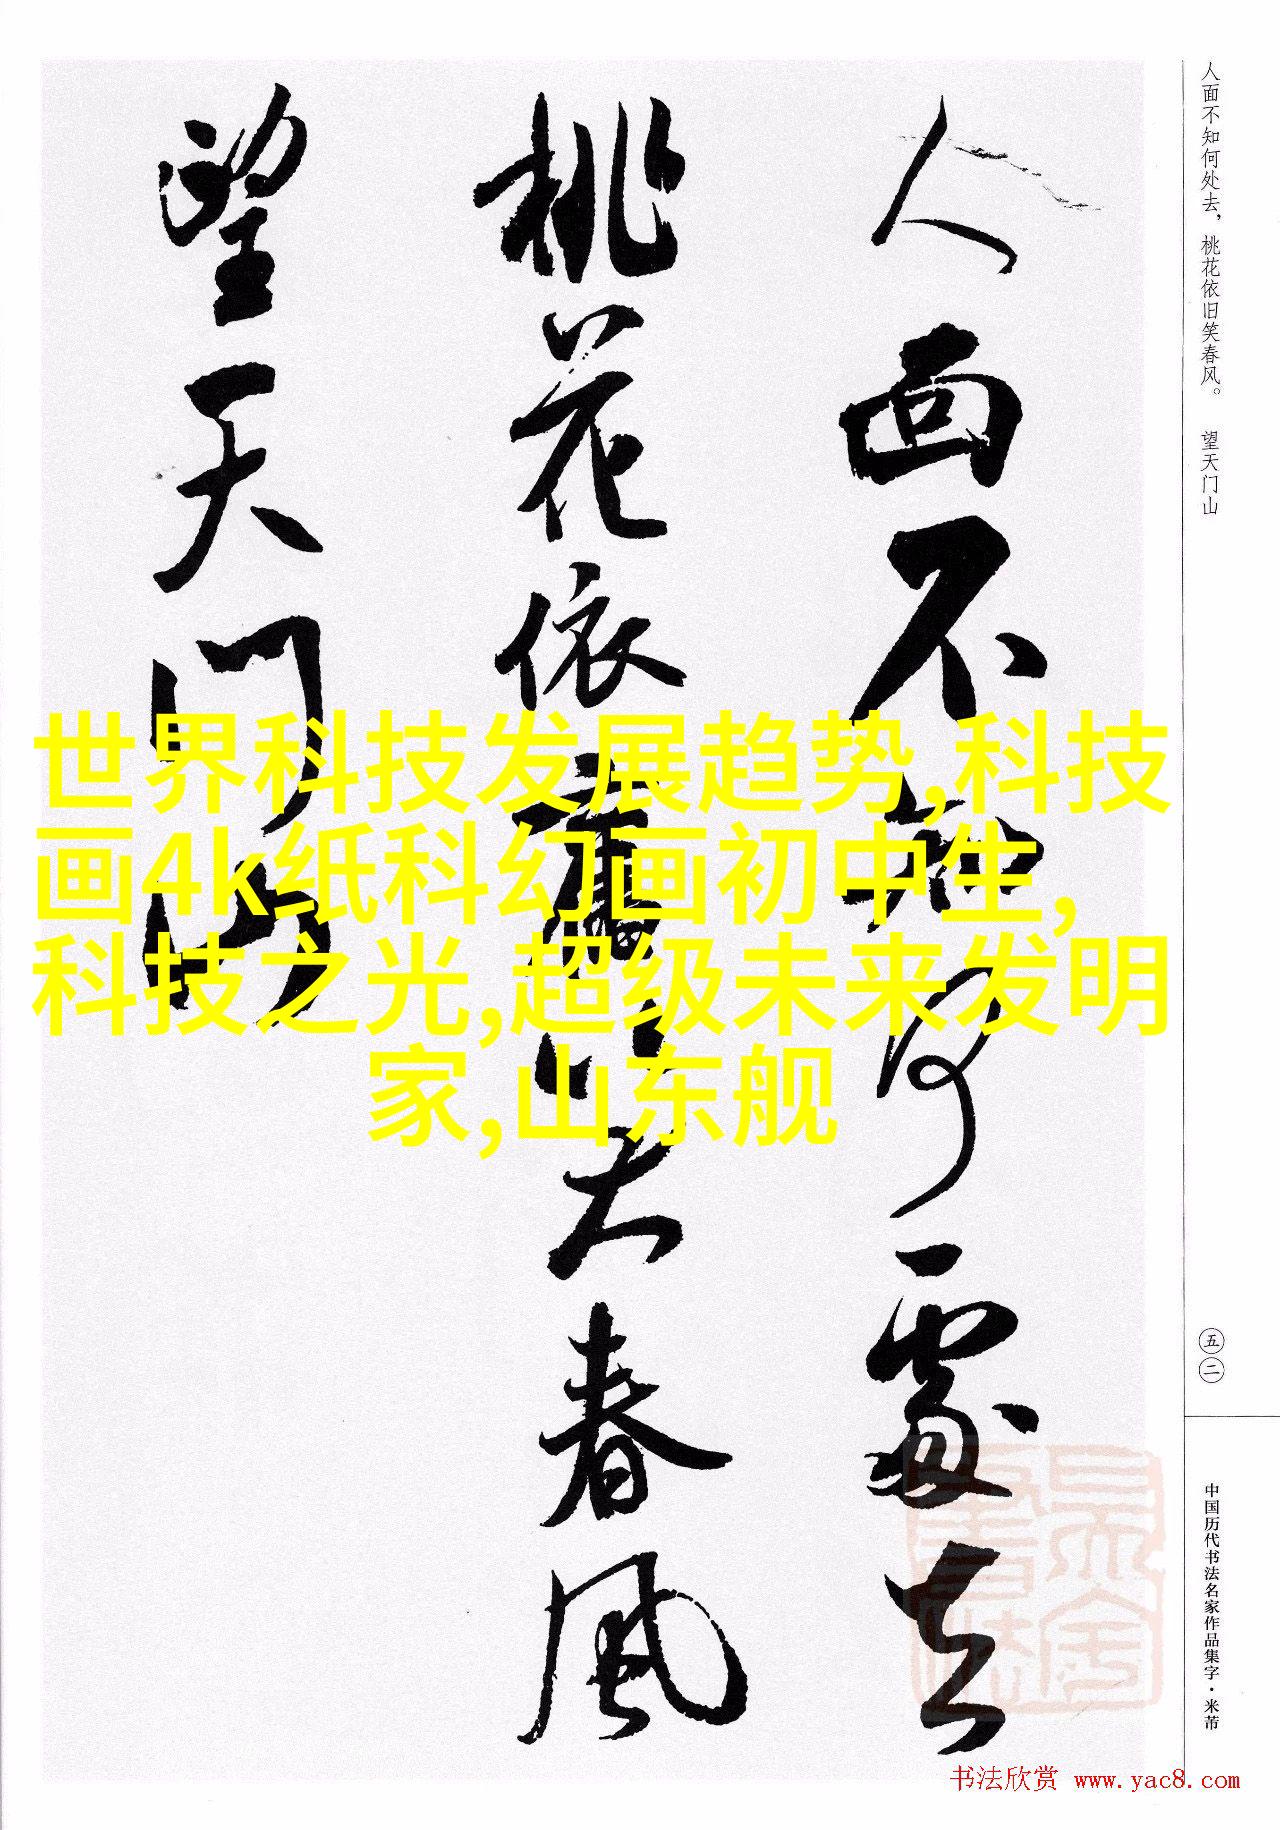 人面不知何处去，桃花依旧笑春风。 望天门山
人面不知何處去
桃花依舊笑春風
望天门山
世界科技发展趋势,科技
画4k纸科幻画初中生,
科技之光,超级未来发明
家,山东舰
五二
中国历代书法名家作品集字·米芾
书法欣赏 www.yac8.com